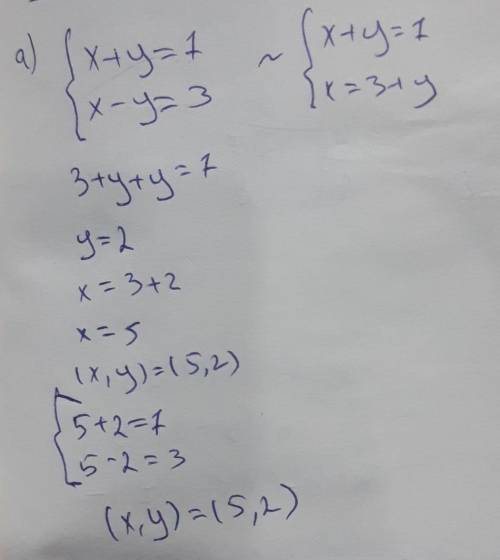 a) { x+y=7 ~ { x+y=7
x-y=3 x=3+y
3+y+y=7
y=2
x=3+2
x=5
(x,y)=(5,2)
{ 5+2=7
5-2=3
(x,y)=(5,2)